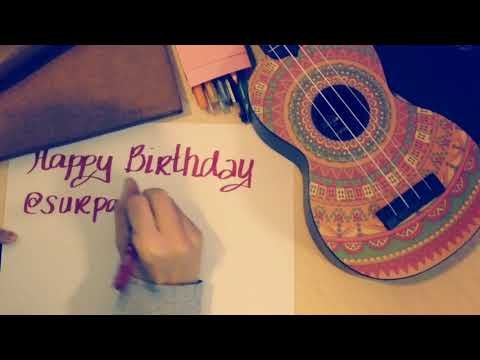 Happy Birthday
@surpa